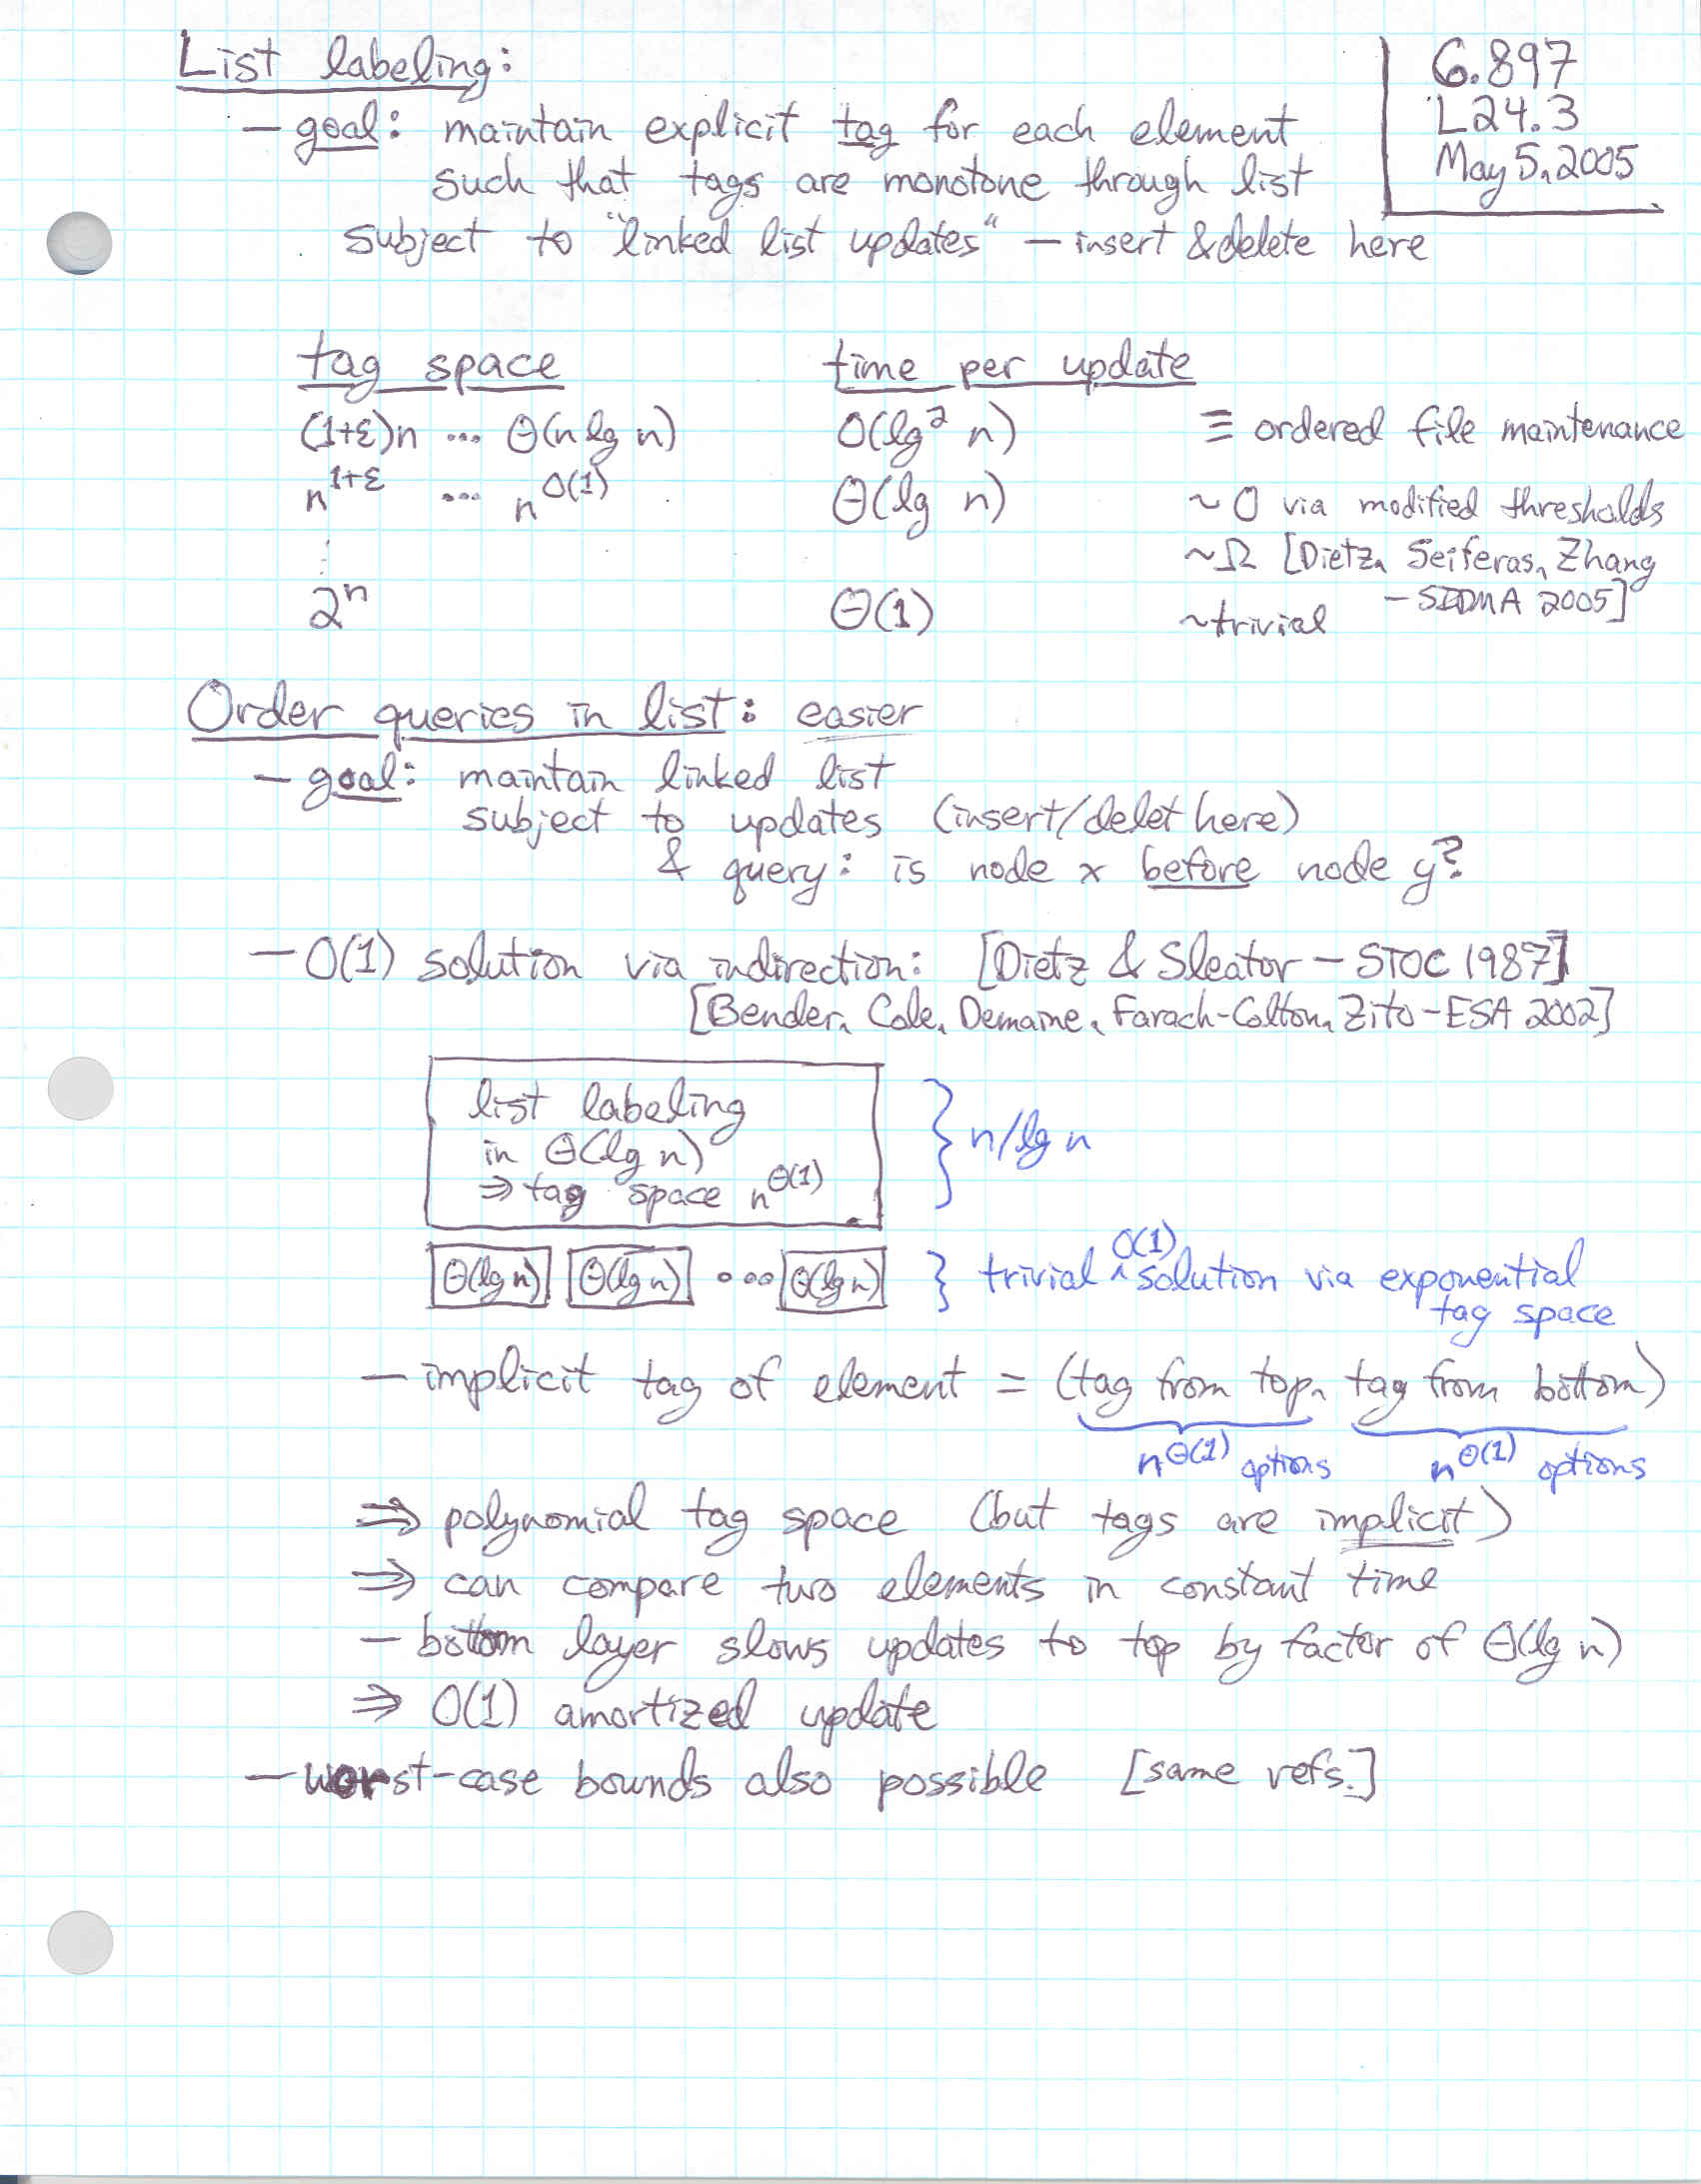 List labeling:
6.897
L24.3
May 5, 2005
— goal: maintain explicit tag for each element
such that tags are monotone through list
subject to "linked list updates" — insert & delete here
tag space time per update
(1+ε)n ... Θ(n lg n) O(lg² n) ≡ ordered file maintenance
n^{1+ε} ... n^{O(1)} Θ(lg n) ~ O via modified thresholds
~ Ω [Dietz, Seiferas, Zhang
— SIDMA 2005]
⋮
2^n Θ(1) ~ trivial
Order queries in list: easier
— goal: maintain linked list
subject to updates (insert/delet here)
& query: is node x before node y?
— O(1) solution via indirection: [Dietz & Sleator — STOC 1987]
[Bender, Cole, Demaine, Farach-Colton, Zito — ESA 2002]
list labeling
in Θ(lg n)
⇒ tag space n^{Θ(1)}
} n/lg n
Θ(lg n) Θ(lg n) ... Θ(lg n) } trivial ^ O(1) solution via exponential
tag space
— implicit tag of element = (tag from top, tag from bottom)
n^{Θ(1)} options n^{Θ(1)} options
⇒ polynomial tag space (but tags are implicit)
⇒ can compare two elements in constant time
— bottom layer slows updates to top by factor of Θ(lg n)
⇒ O(1) amortized update
— worst-case bounds also possible [same refs.]